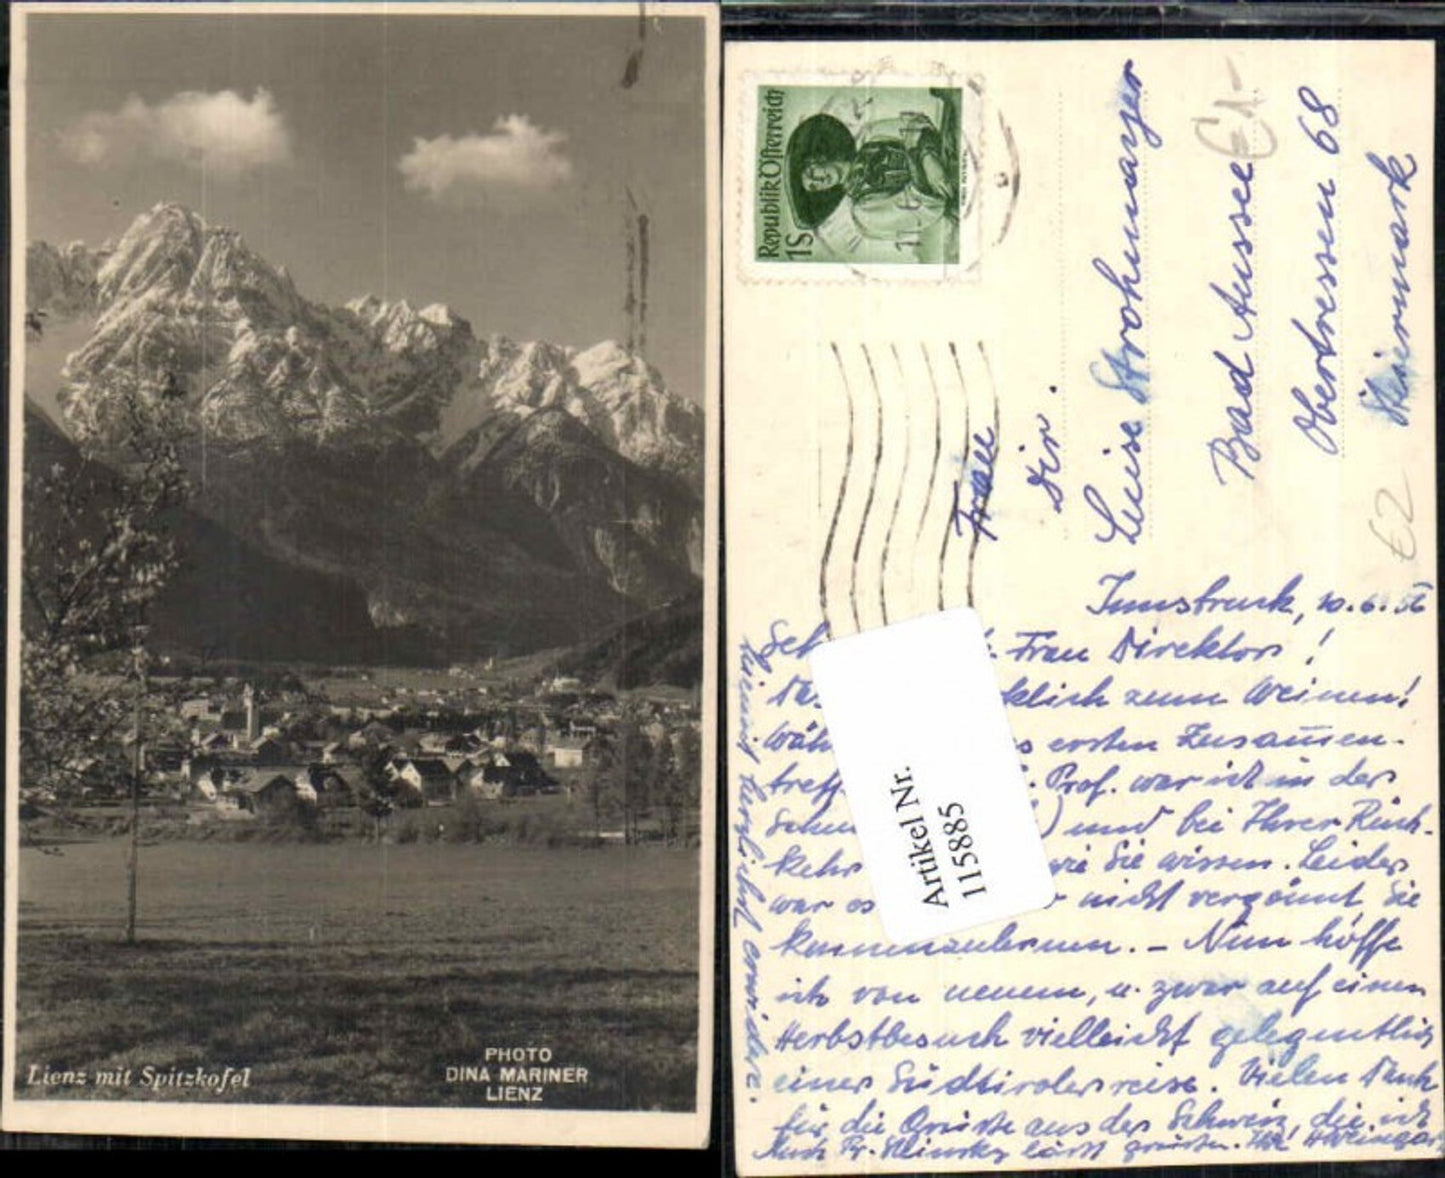 Lienz mit Spitzkofel
PHOTO
DINA MARINER
LIENZ
Republik Österreich
1S
11. 6.
Frau
Dir.
Luise Strohmayer
Bad Aussee
Obertressen 68
Steiermark
€1-
€2
Artikel Nr.
115885
Innsbruck, 10.6.56
Frau Direktor!
zum Weinen!
ersten Zusammen-
treff Prof. war ich in der
und bei Ihrer Rück-
kehr wie Sie wissen. Leider
war es nicht vergönnt Sie
kennenzulernen. – Nun hoffe
ich von neuem, u. zwar auf einen
Herbstbesuch vielleicht gelegentlich
einer Südtirolerreise. Vielen Dank
für die Grüsse aus der Schweiz, die ich
hiemit herzlichst erwidere.
Auch Fr. lässt grüssen. Ihr